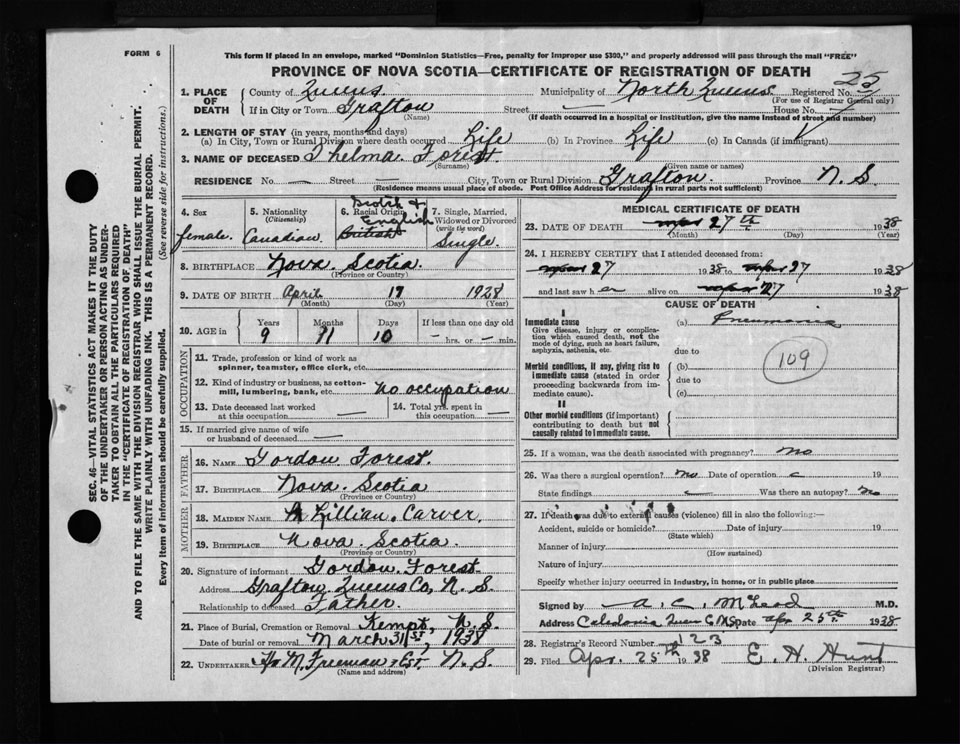 FORM 6
This form if placed in an envelope, marked "Dominion Statistics—Free, penalty for improper use $300," and properly addressed will pass through the mail "FREE"
PROVINCE OF NOVA SCOTIA—CERTIFICATE OF REGISTRATION OF DEATH
25
SEC. 46—VITAL STATISTICS ACT MAKES IT THE DUTY
OF THE UNDERTAKER OR PERSON ACTING AS UNDER-
TAKER TO OBTAIN ALL THE PARTICULARS REQUIRED
IN THE "CERTIFICATE OF REGISTRATION OF DEATH"
AND TO FILE THE SAME WITH THE DIVISION REGISTRAR WHO SHALL ISSUE THE BURIAL PERMIT.
WRITE PLAINLY WITH UNFADING INK. THIS IS A PERMANENT RECORD.
Every item of information should be carefully supplied. (See reverse side for instructions.)
1. PLACE OF DEATH County of Queens. Municipality of North Queens. Registered No.
(For use of Registrar General only)
If in City or Town Grafton Street — House No.
(Name) (If death occurred in a hospital or institution, give the name instead of street and number)
2. LENGTH OF STAY (in years, months and days)
(a) In City, Town or Rural Division where death occurred Life (b) In Province Life (c) In Canada (if immigrant)
3. NAME OF DECEASED Thelma Forest.
(Surname) (Given name or names)
RESIDENCE No. — Street — City, Town or Rural Division Grafton. Province N. S.
(Residence means usual place of abode. Post Office Address for residents in rural parts not sufficient)
4. Sex female.
5. Nationality (Citizenship) Canadian
6. Racial Origin Scotch & English British
7. Single, Married, Widowed or Divorced (write the word) Single.
8. BIRTHPLACE Nova Scotia.
(Province or Country)
9. DATE OF BIRTH April 17 1928
(Month) (Day) (Year)
10. AGE in Years 9 Months 11 Days 10 If less than one day old — hrs. or — min.
OCCUPATION
11. Trade, profession or kind of work as
spinner, teamster, office clerk, etc.
12. Kind of industry or business, as cotton-
mill, lumbering, bank, etc. no occupation
13. Date deceased last worked at this occupation —
14. Total yrs. spent in this occupation —
15. If married give name of wife
or husband of deceased —
FATHER
16. NAME Gordon Forest.
17. BIRTHPLACE Nova. Scotia
(Province or Country)
MOTHER
18. MAIDEN NAME Lillian. Carver.
19. BIRTHPLACE Nova. Scotia.
(Province or Country)
20. Signature of informant Gordon. Forest.
Address Grafton Queens Co, N. S.
Relationship to deceased Father.
21. Place of Burial, Cremation or Removal Kempt, N. S.
Date of burial or removal March 31st, 1938
22. UNDERTAKER M. Freeman N. S.
(Name and address)
MEDICAL CERTIFICATE OF DEATH
23. DATE OF DEATH 27th 1938
(Month) (Day) (Year)
24. I HEREBY CERTIFY that I attended deceased from:
27 1938 to 27 1938
and last saw her alive on 27 1938
CAUSE OF DEATH
I
Immediate cause (a) Pneumonia
Give disease, injury or complica-
tion which caused death, not the
mode of dying, such as heart failure,
asphyxia, asthenia, etc.
due to
109
Morbid conditions, if any, giving rise to (b)
immediate cause (stated in order
proceeding backwards from im-
mediate cause).
due to
(c)
II
Other morbid conditions (if important)
contributing to death but not
causally related to immediate cause.
25. If a woman, was the death associated with pregnancy? no
26. Was there a surgical operation? no Date of operation 19
State findings Was there an autopsy? no
27. If death was due to external causes (violence) fill in also the following:—
Accident, suicide or homicide? Date of injury 19
(State which)
Manner of injury
(How sustained)
Nature of injury
Specify whether injury occurred in industry, in home, or in public place
Signed by A. C. McLeod M.D.
Address Caledonia Queens Co N.S. Date Apr 25th 1938
28. Registrar's Record Number 123
29. Filed Apr. 25th 1938 E. H. Hunt
(Division Registrar)